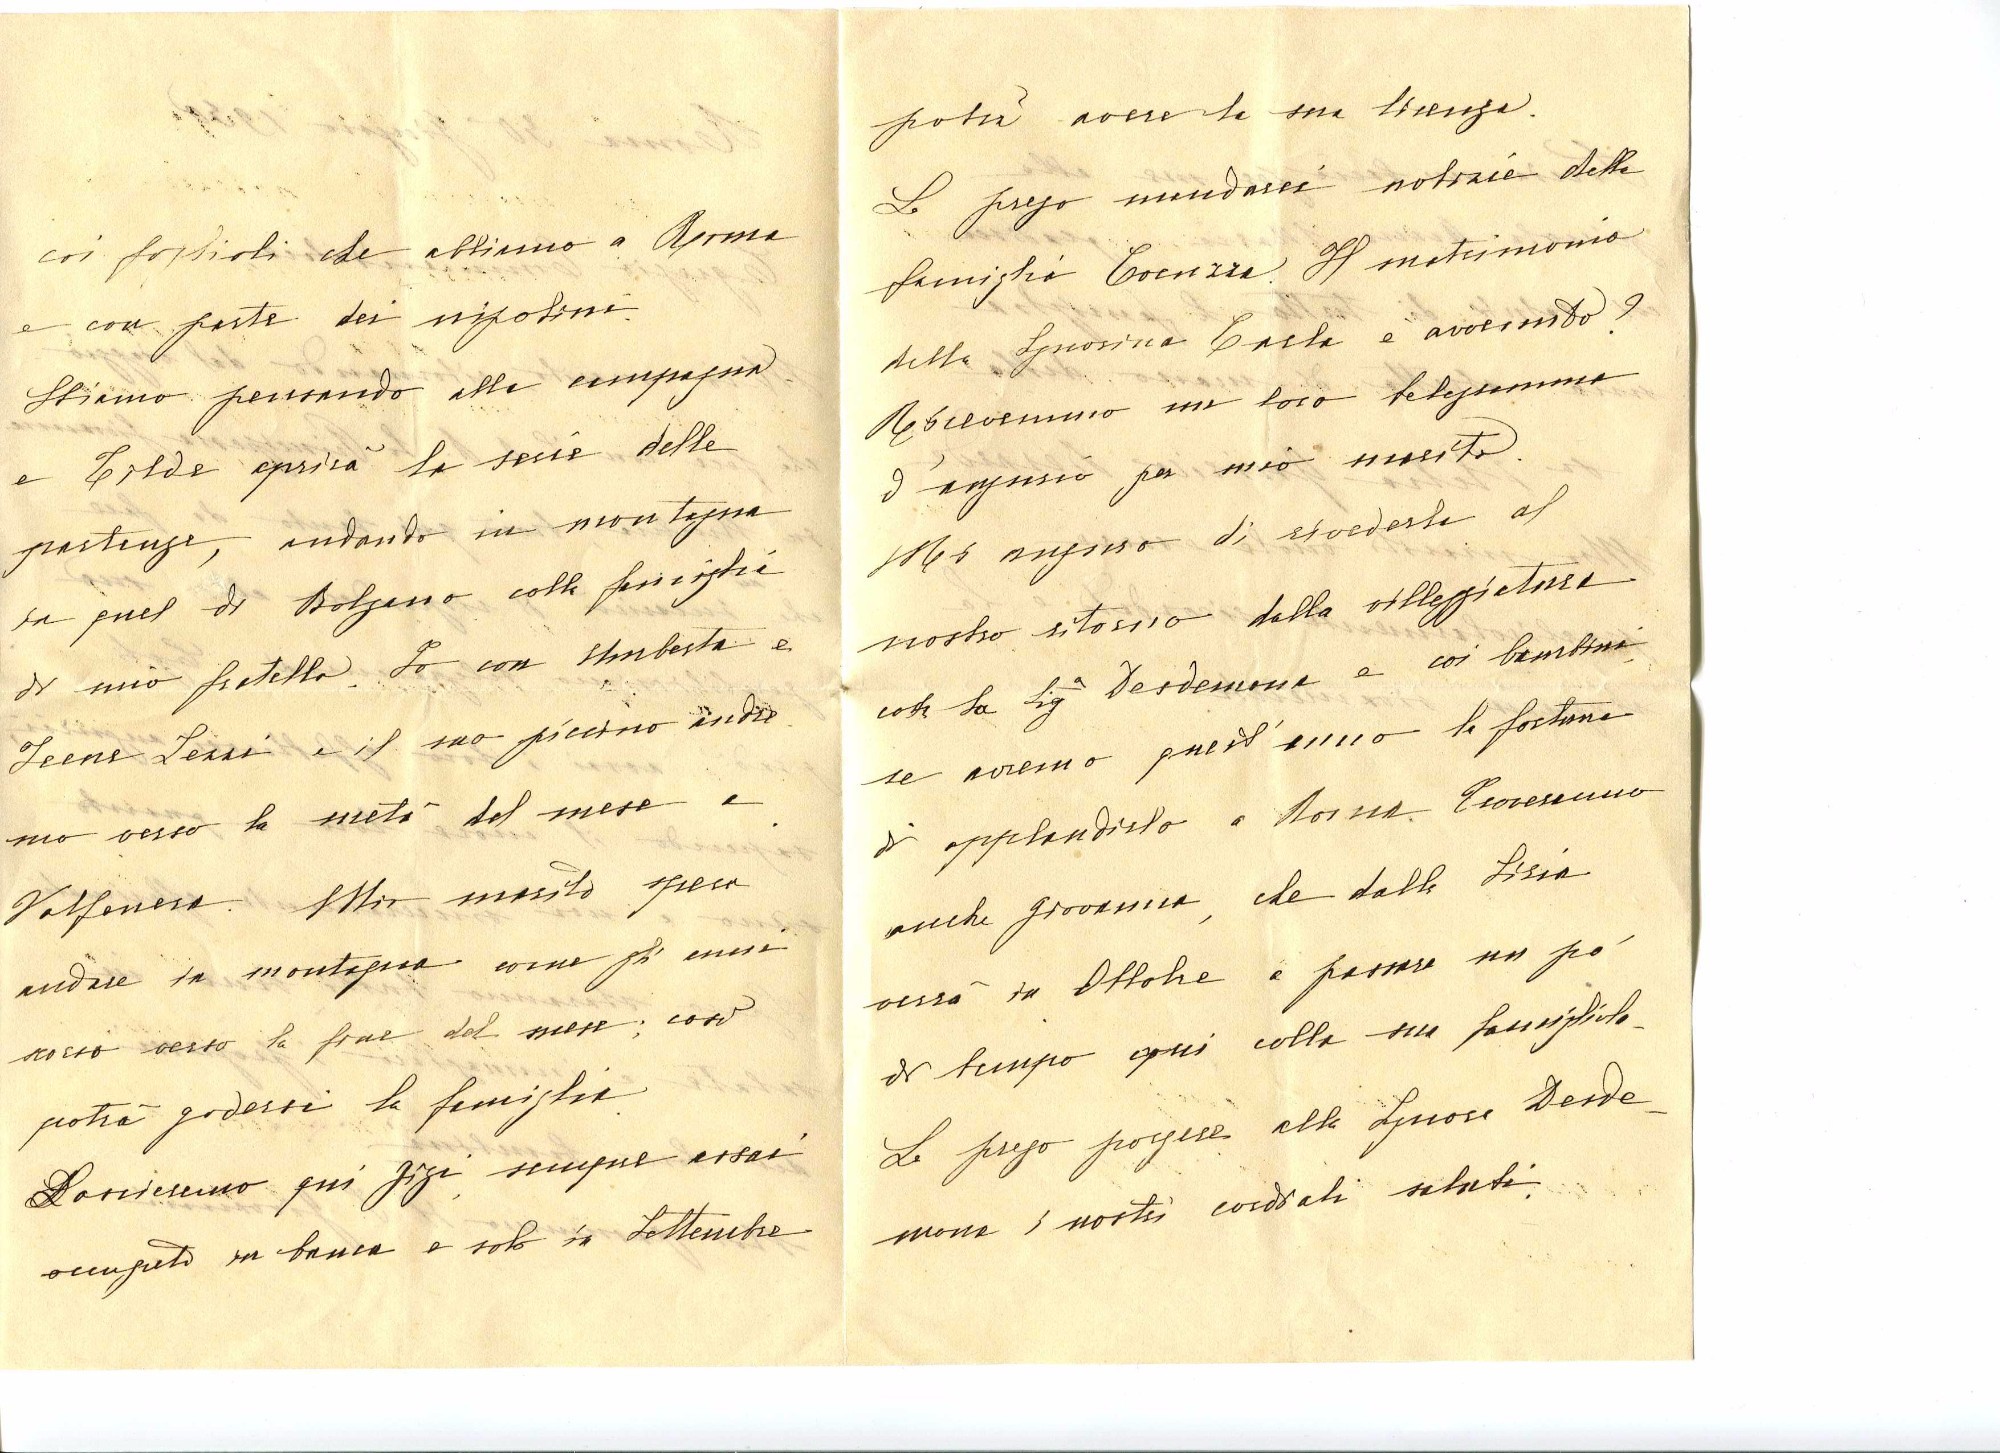 coi figlioli che abbiamo a Roma
e con parte dei nipotini.
Stiamo pensando alla campagna
e Tilde aprirà la serie delle
partenze, andando in montagna
in quel di Bolzano colla famiglia
di mio fratello. Io con Umberta e
Irene Lessi e il suo piccino andre
mo verso la metà del mese a
Valfenera. Mio marito spera
andare in montagna come gli anni
scorsi verso la fine del mese; così
potrà godersi la famiglia.
Lascieremo qui Gigi, sempre assai
occupato in banca e solo in Settembre
potrà avere la sua licenza.
La prego mandarci notizie della
famiglia. Il matrimonio
della Signorina Carla è avvenuto?
Ricevemmo un loro telegramma
d'augurio per mio marito.
Mi auguro di rivederla al
nostro ritorno dalla villeggiatura
con la Sigª Desdemona e coi bambini,
se avremo quest'anno la fortuna
di applaudirlo a Roma. Troveranno
anche Giovanna, che dalla Siria
verrà in Ottobre a passare un po'
di tempo qui colla sua famigliola.
La prego porgere alla Signora Desde-
mona i nostri cordiali saluti.